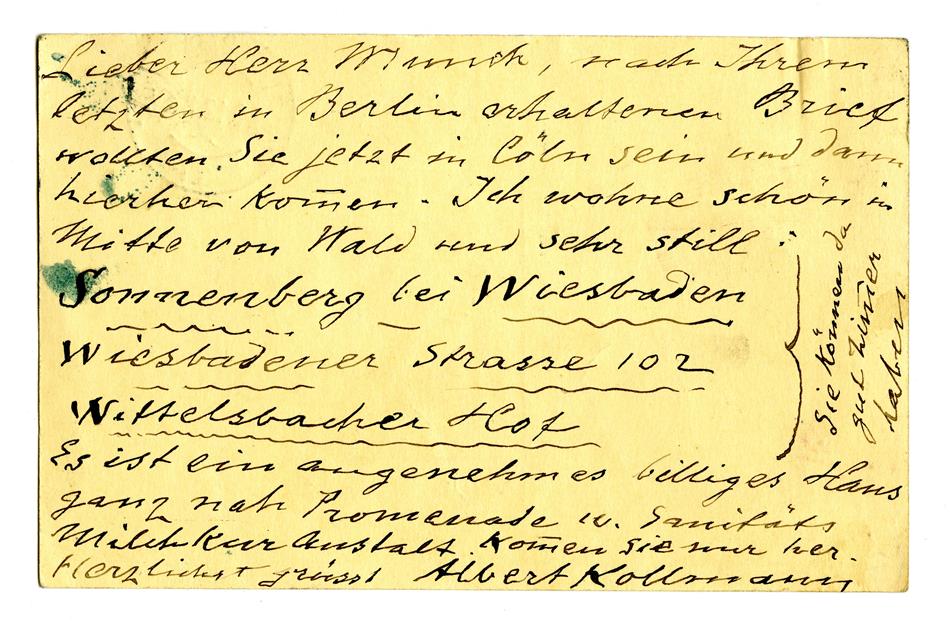 Lieber Herr Munch, nach Ihrem
letzten in Berlin erhaltenen Brief
wollten Sie jetzt in Cöln sein und dann
hierher kom̄en. Ich wohne schön in
Mitte von Wald und sehr still :
Sonnenberg bei Wiesbaden
Wiesbadener Strasse 102
Wittelsbacher Hof
Sie können da
gut Zim̄er
haben
Es ist ein angenehmes billiges Haus
ganz nah Promenade u. Sanitäts
Milchkuranstalt. Kom̄en Sie nur her.
Herzlichst grüsst Albert Kollmann